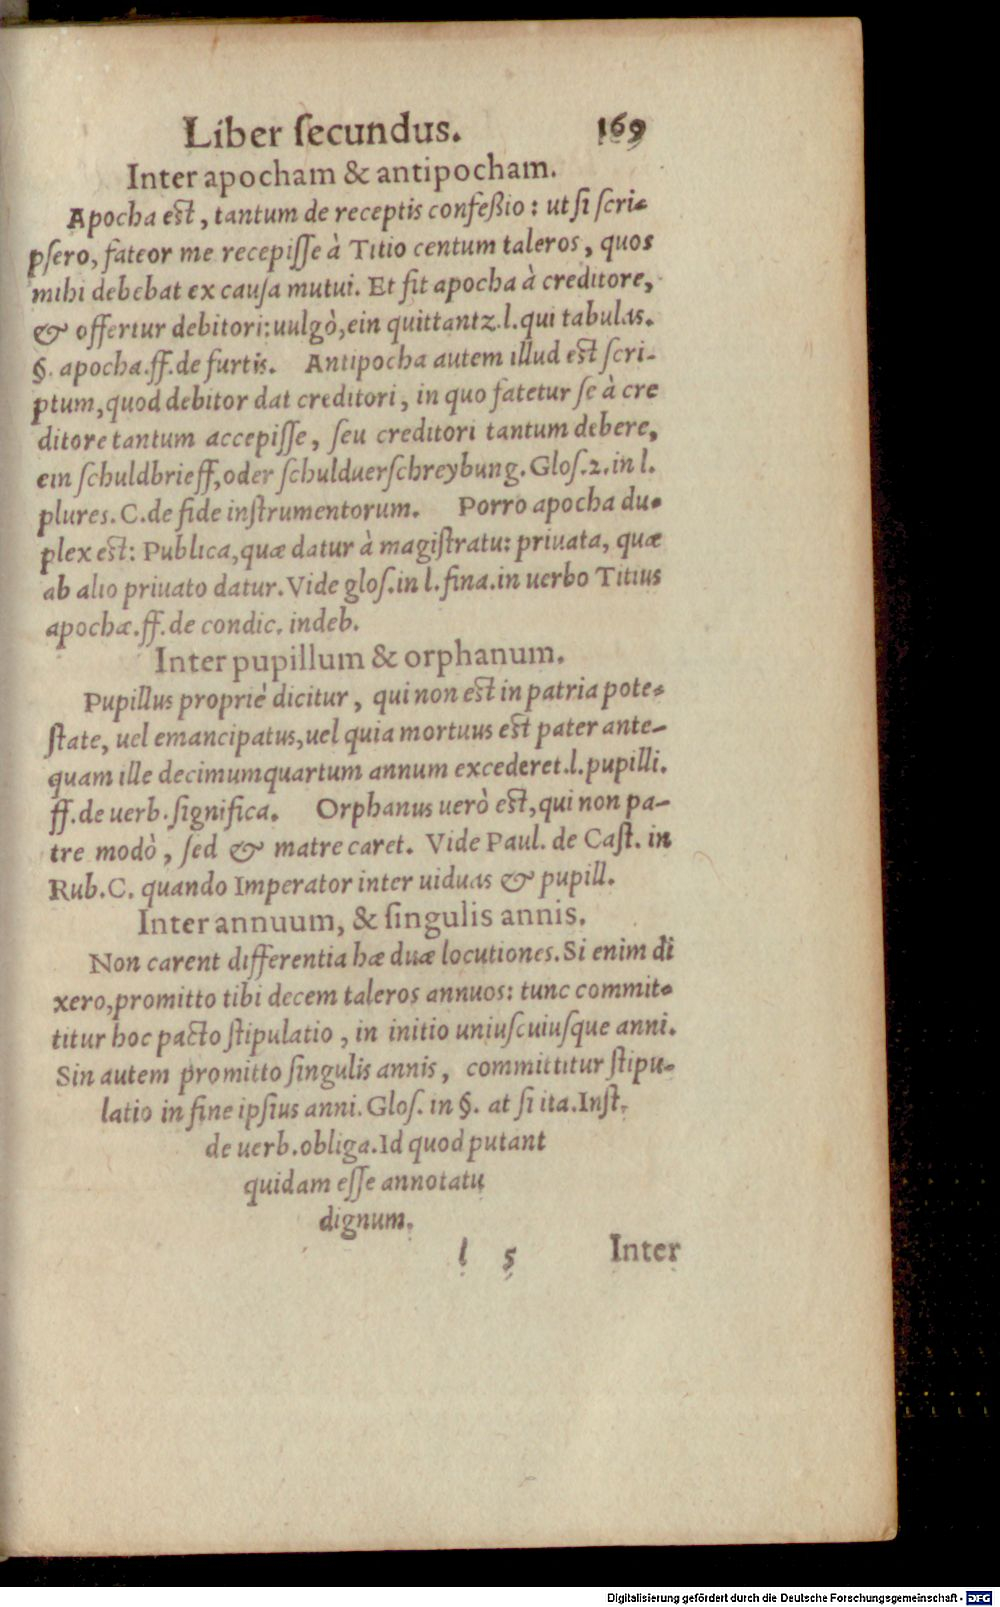 Liber ſecundus. 169
Inter apocham & antipocham.
Apocha est, tantum de receptis confeßio: ut ſi ſcri-
pſero, fateor me recepiſſe à Titio centum taleros, quos
mihi debebat ex cauſa mutui. Et fit apocha à creditore,
& offertur debitori: uulgò, ein quittantz. l. qui tabulas.
§. apocha. ff. de furtis. Antipocha autem illud est ſcri-
ptum, quod debitor dat creditori, in quo fatetur ſe à cre
ditore tantum accepiſſe, ſeu creditori tantum debere,
ein ſchuldbrieff, oder ſchulduerſchreybung. Gloſ. 2. in l.
plures. C. de fide inſtrumentorum. Porro apocha du-
plex est: Publica, quæ datur à magiſtratu: priuata, quæ
ab alio priuato datur. Vide gloſ. in l. fina. in uerbo Titius
apochæ. ff. de condic. indeb.
Inter pupillum & orphanum.
Pupillus propriè dicitur, qui non est in patria pote-
ſtate, uel emancipatus, uel quia mortuus est pater ante-
quam ille decimumquartum annum excederet. l. pupilli.
ff. de uerb. ſignifica. Orphanus uerò est, qui non pa-
tre modò, ſed & matre caret. Vide Paul. de Caſt. in
Rub. C. quando Imperator inter uiduas & pupill.
Inter annuum, & ſingulis annis.
Non carent differentia hæ duæ locutiones. Si enim di
xero, promitto tibi decem taleros annuos: tunc commit-
titur hoc pacto ſtipulatio, in initio uniuſcuiuſque anni.
Sin autem promitto ſingulis annis, committitur ſtipu-
latio in fine ipſius anni. Gloſ. in §. at ſi ita. Inſt.
de uerb. obliga. Id quod putant
quidam eſſe annotatu
dignum.
l 5 Inter
Digitalisierung gefördert durch die Deutsche Forschungsgemeinschaft - DFG